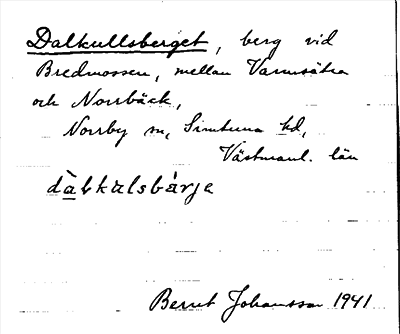 Dalkullsberget, berg vid
Bredmossen, mellan Varmsätra
och Norrbäck,
Norrby sn, Simtuna hd,
Västmanl. län
dàlkulsbárjə
Bernt Johansson 1941